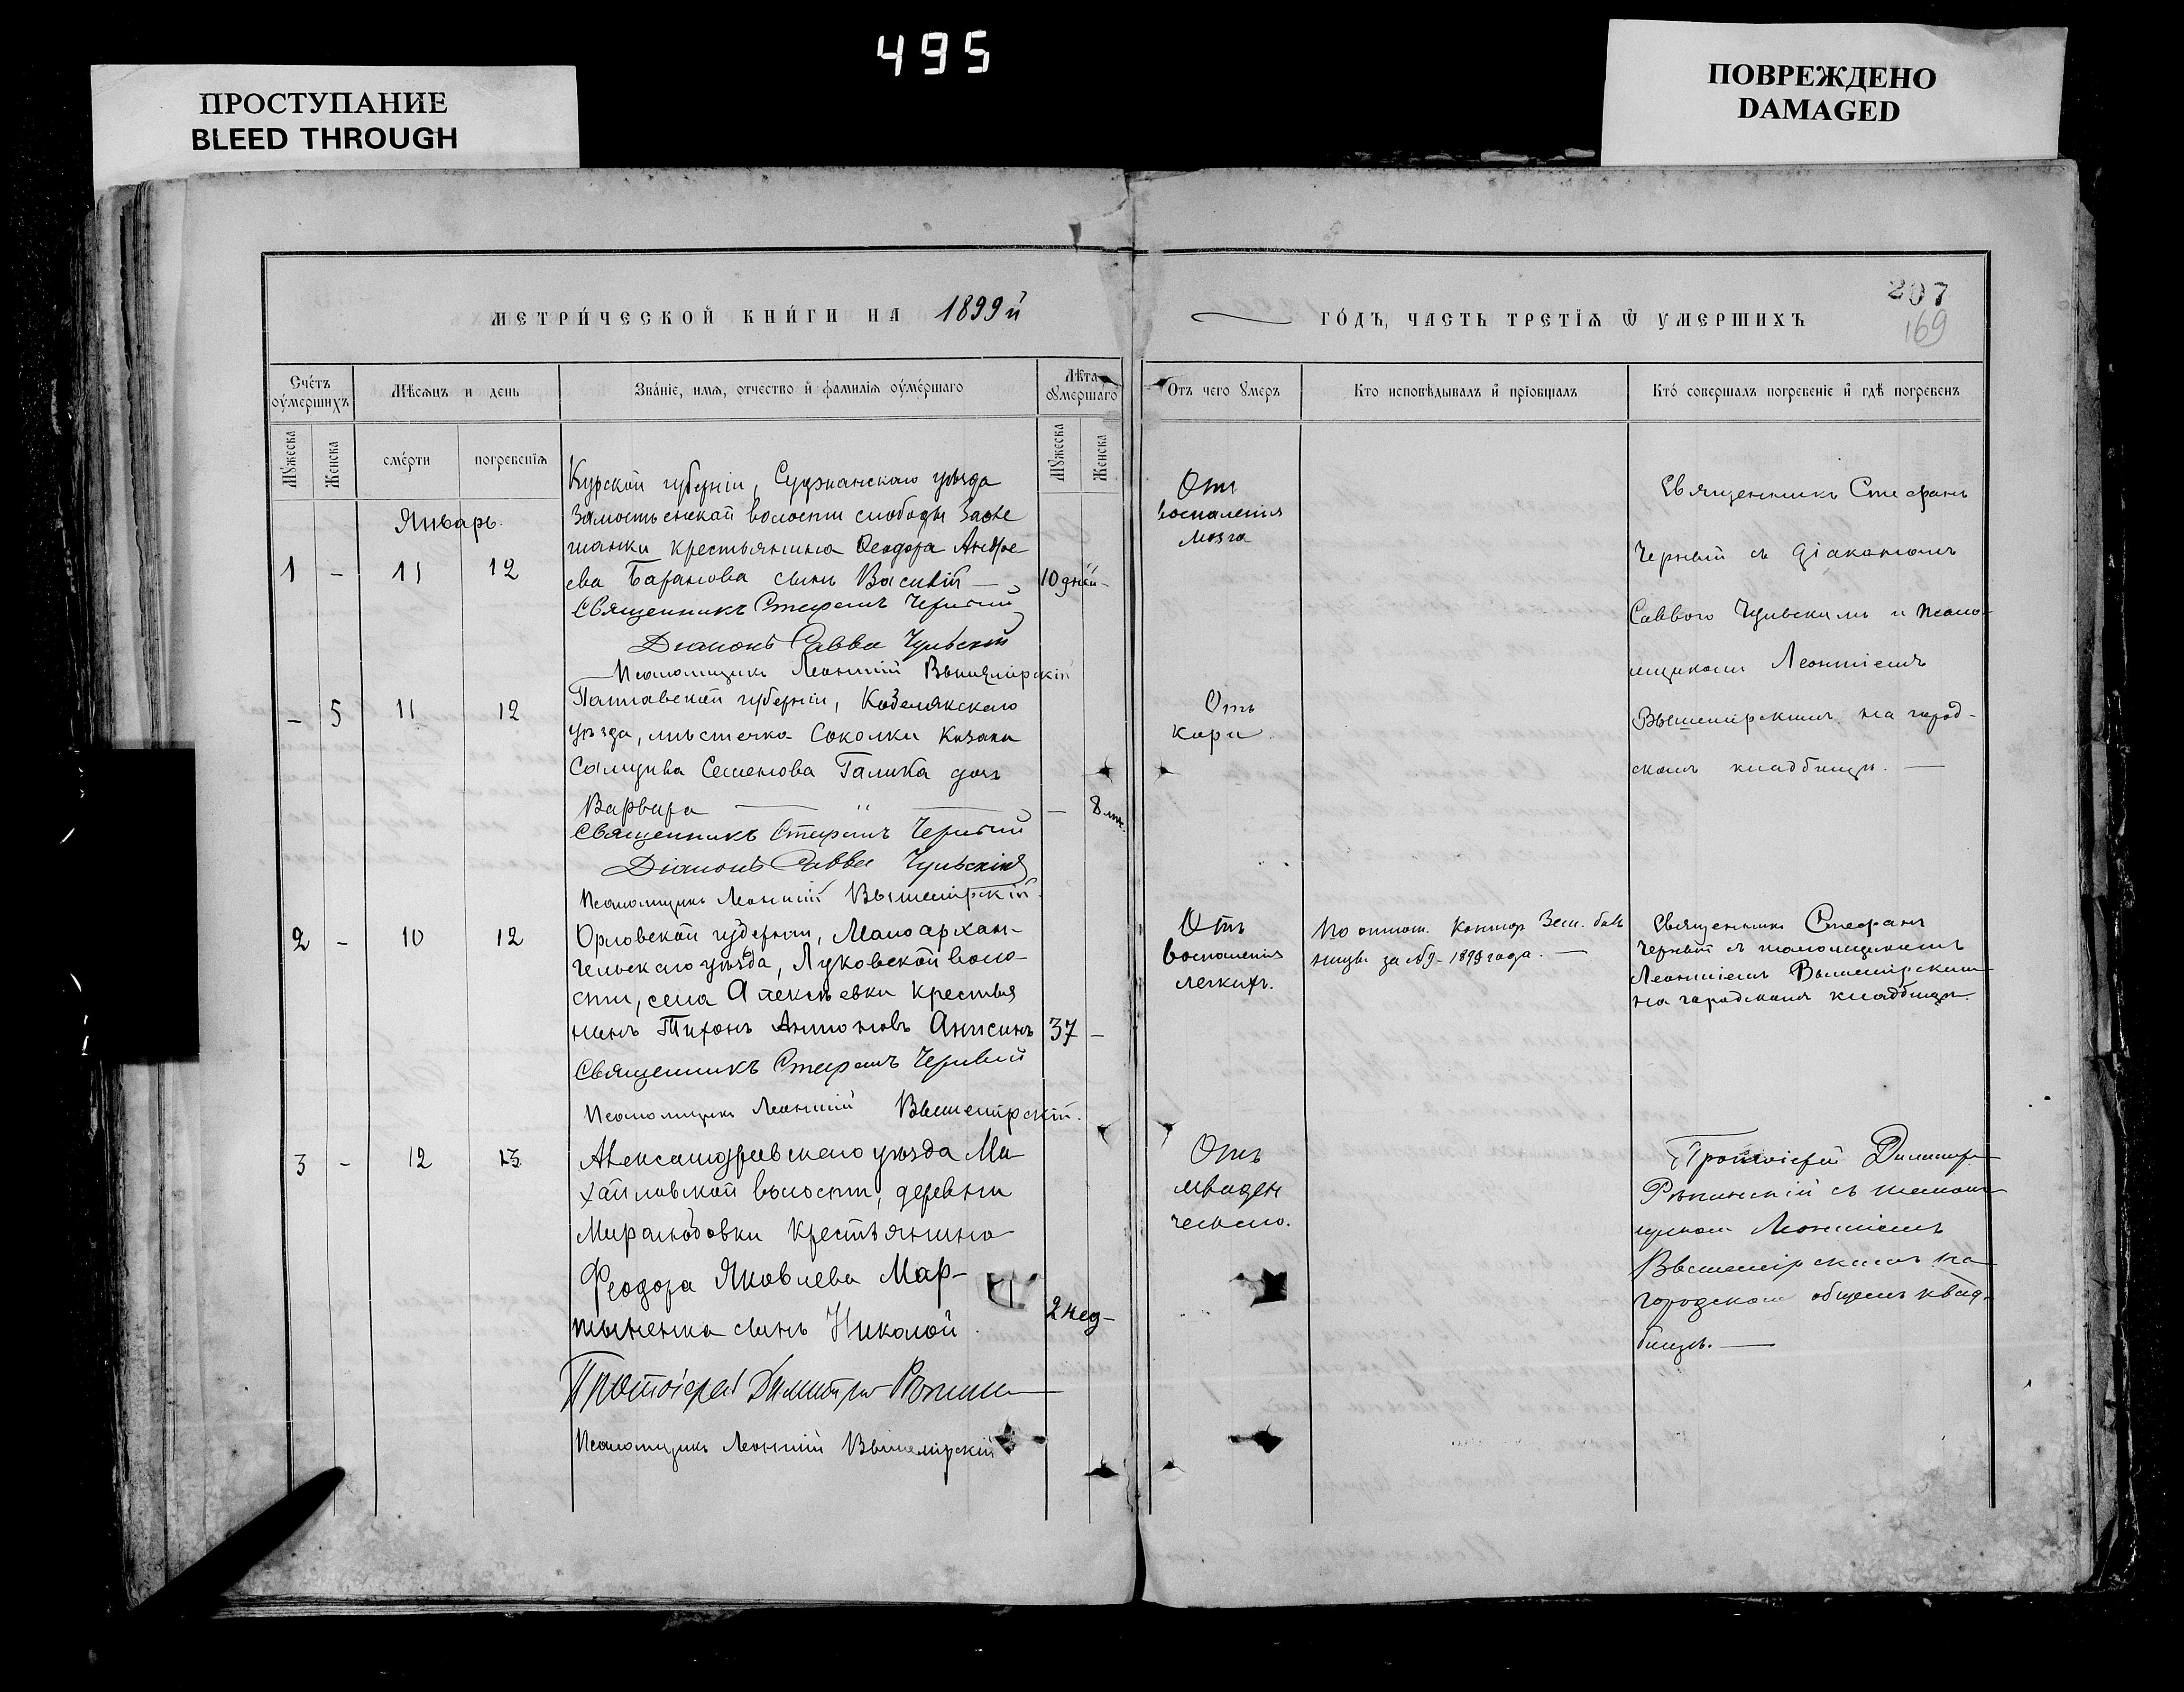 495
ПРОСТУПАНИЕ
BLEED THROUGH
ПОВРЕЖДЕНО
DAMAGED
МЕТРИ́ЧЕСКОЙ КНИ́ГИ НА 1899й
ГО́ДЪ, ЧАСТЬ ТРЕТІѦ Ѿ УМЕРШИХЪ
207
169
Сче́тъ оу҆ме́ршихъ
Мѣсѧцъ и день
Зва́нїе, имѧ, отчество и҆ фамилїѧ оу҆ме́ршаго
Лѣта оу҆мершаго
Отъ чего ꙋмеръ
Кто исповѣдывалъ и҆ прїобщалъ
Кто́ совершалъ погребенїе и҆ гдѣ погребенъ
Мꙋжеска
Женска
сме́рти
погребенїѧ
Мꙋжеска
Женска
Январь.
Курской губерніи, Суджанскаго уѣзда
Замостьенской волости слободы
крестьянина Ѳеодора Андрее
ева Баранова сынъ Василій —
1 - 11 12
10 дней -
Священникъ Стефанъ Черный
Діаконъ Савва Чульскій
Псаломщикъ Леонтій Вышемірскій
Отъ
воспаленія
мозга
Священникъ Стефанъ
Черный съ діакономъ
Саввою Чульскимъ и псало-
мщикомъ Леонтіемъ
Вышемірскимъ на город-
скомъ кладбищѣ. —
- 5 11 12
Полтавской губерніи, Кобелякскаго
уѣзда, мѣстечка Соколки Козака
Семенова Галика дочь
Варвара — " —
- 8
Священникъ Стефанъ Черный
Діаконъ Савва Чульскій
Псаломщикъ Леонтій Вышемірскій.
Отъ
кори.
2 - 10 12
Орловской губерніи, Малоархан-
гельскаго уѣзда, Луковской воло-
сти, села Алексѣевки крестья
нинъ Тихонъ Антоновъ Анисинъ
37 -
Священникъ Стефанъ Черный
Псаломщикъ Леонтій Вышемірскій.
Отъ
воспаленія
легкихъ.
По отнош. Контор. Зем. боль
ницы за № 9 - 1899 года. —
Священникъ Стефанъ
Черный съ псаломщикомъ
Леонтіемъ Вышемірскимъ
на городскомъ кладбищѣ.
3 - 12 13
Александровскаго уѣзда Ми
хайловской волости, деревни
Миролюбовки крестьянина
Феодора Яковлева Мар-
тыненка сынъ Николай.
2 нед -
Протоіерей Димитрій Рѣпинскій
Псаломщикъ Леонтій Вышемірскій
Отъ
младен
ческаго.
Протоіерей Димитрій
Рѣпинскій съ псалом
щикомъ Леонтіемъ
Вышемірскимъ на
городскомъ общемъ клад-
бищѣ. —